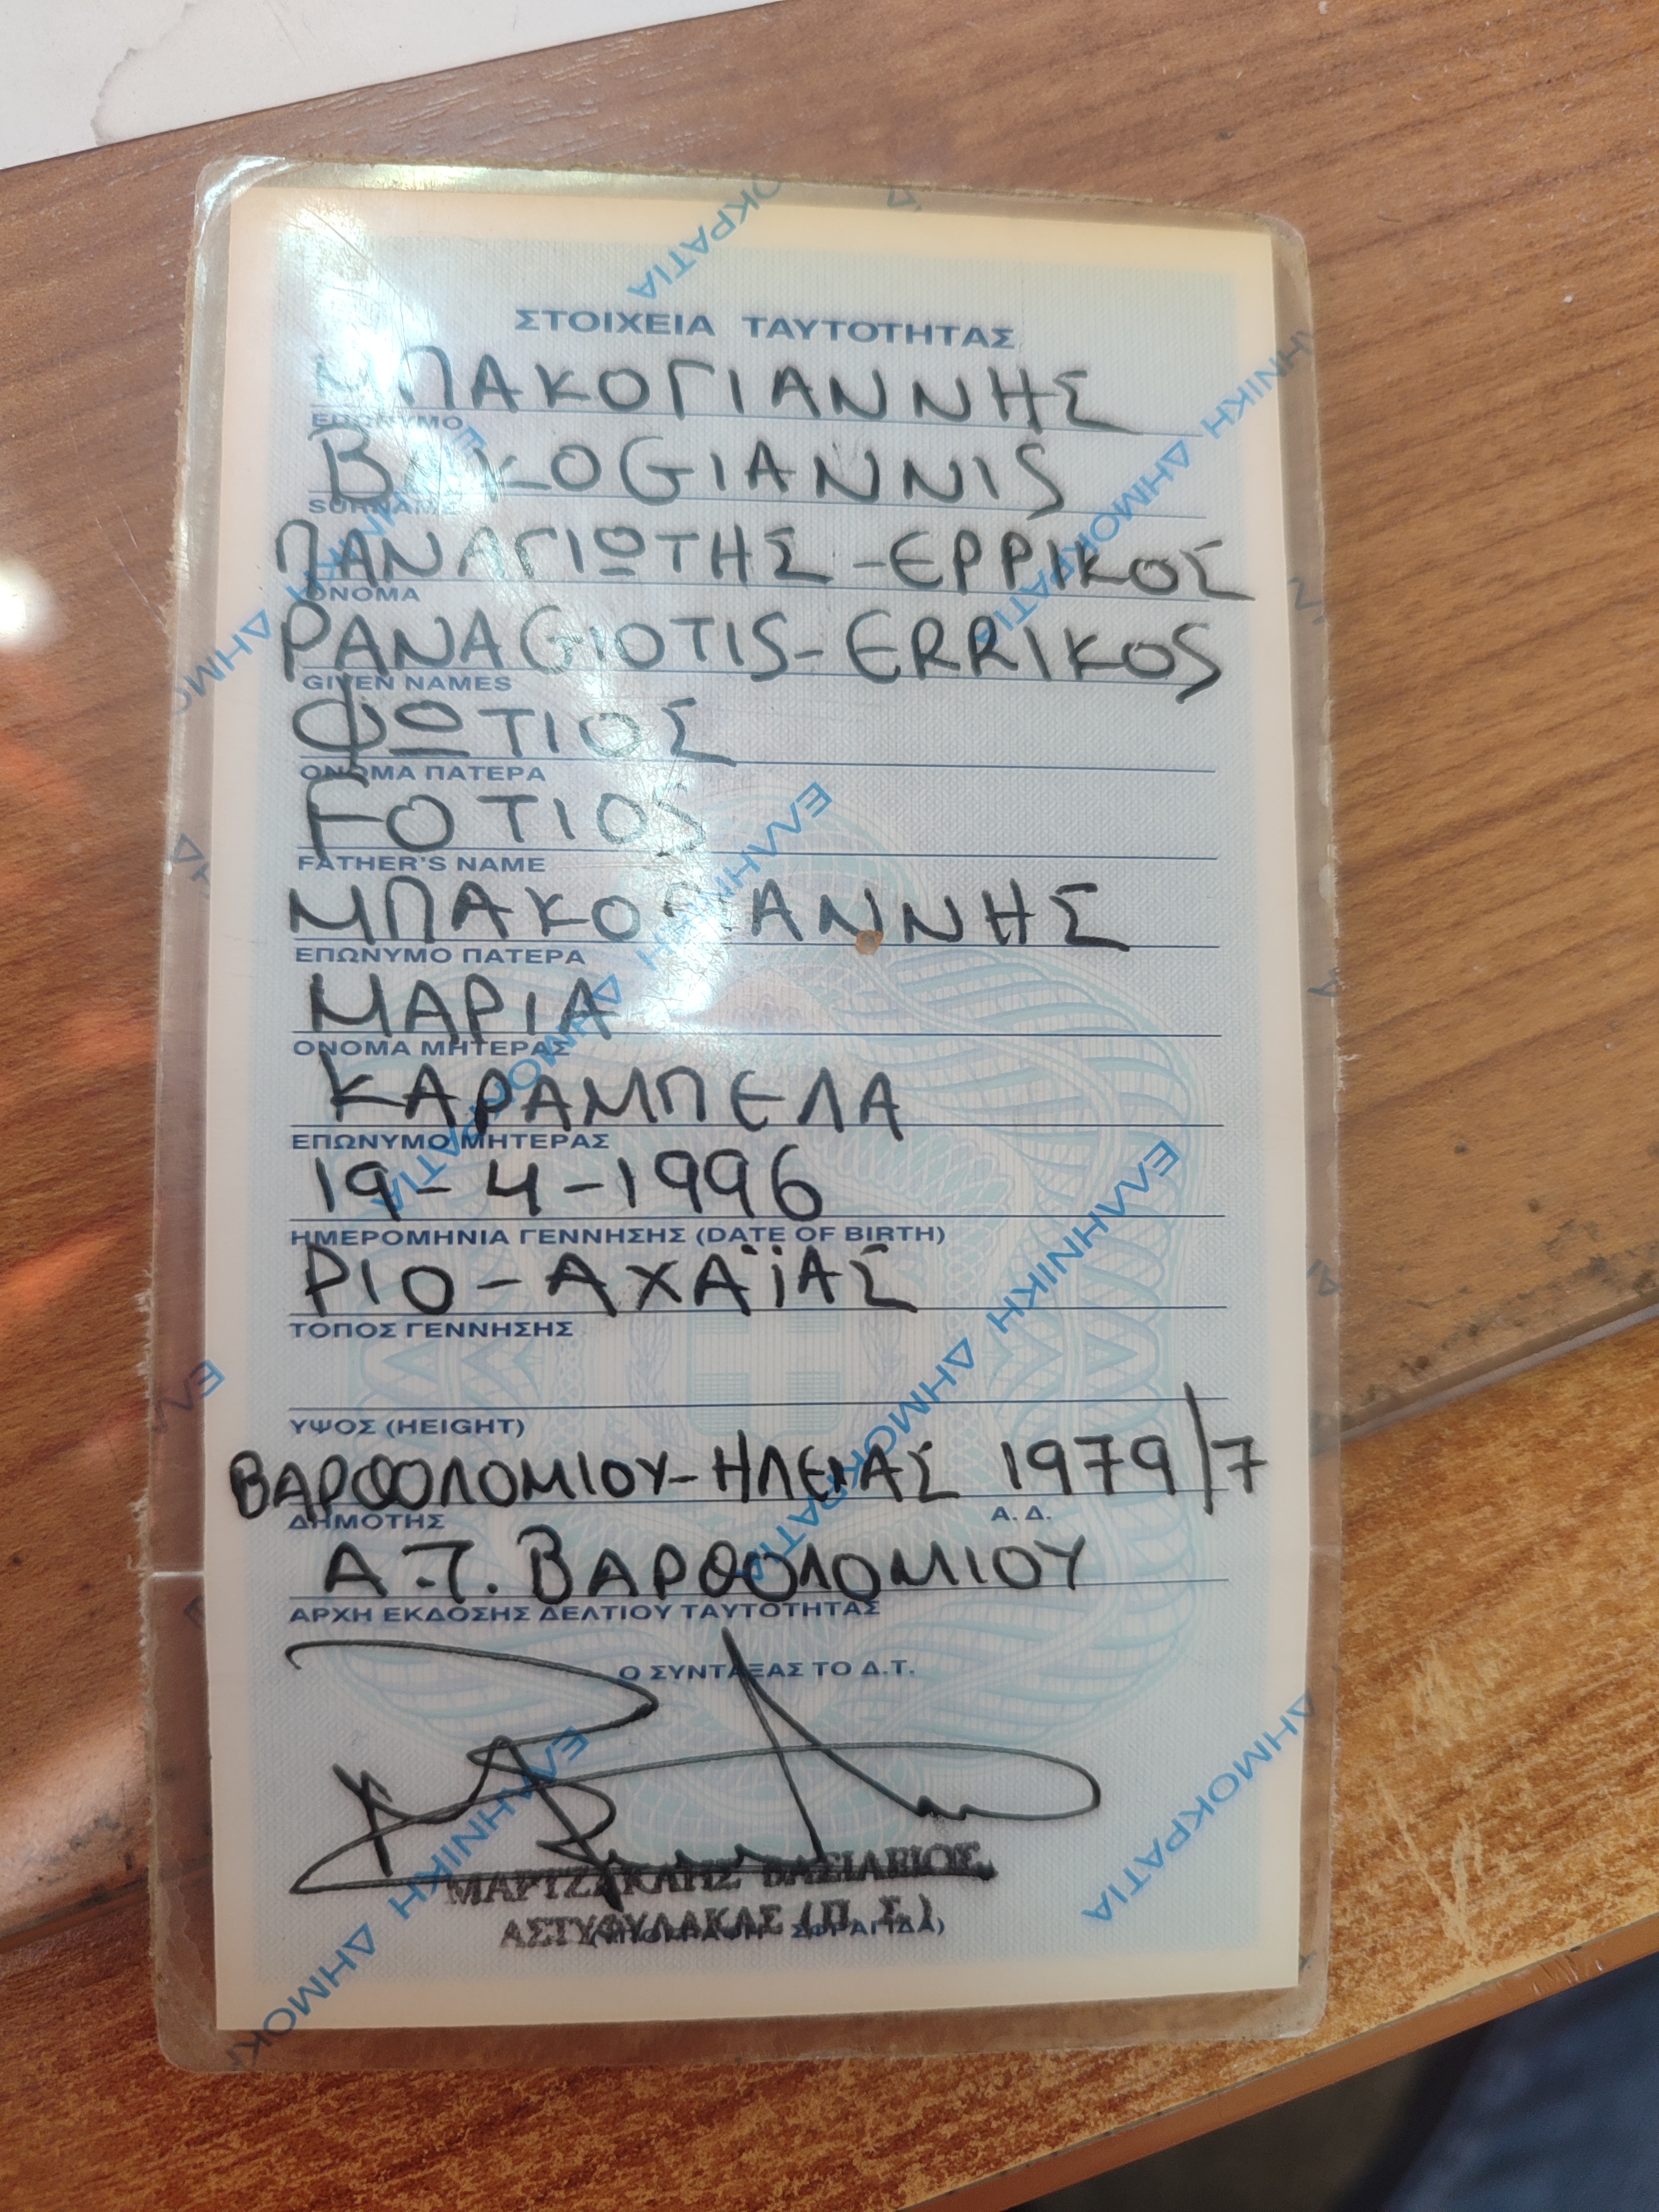 ΣΤΟΙΧΕΙΑ ΤΑΥΤΟΤΗΤΑΣ
ΜΠΑΚΟΓΙΑΝΝΗΣ
ΕΠΩΝΥΜΟ
BAKOGIANNIS
SURNAME
ΠΑΝΑΓΙΩΤΗΣ-ΕΡΡΙΚΟΣ
ΟΝΟΜΑ
PANAGIOTIS-ERRIKOS
GIVEN NAMES
ΦΩΤΙΟΣ
ΟΝΟΜΑ ΠΑΤΕΡΑ
FOTIOS
FATHER'S NAME
ΜΠΑΚΟΓΙΑΝΝΗΣ
ΕΠΩΝΥΜΟ ΠΑΤΕΡΑ
ΜΑΡΙΑ
ΟΝΟΜΑ ΜΗΤΕΡΑΣ
ΚΑΡΑΜΠΕΛΑ
ΕΠΩΝΥΜΟ ΜΗΤΕΡΑΣ
19-4-1996
ΗΜΕΡΟΜΗΝΙΑ ΓΕΝΝΗΣΗΣ (DATE OF BIRTH)
ΡΙΟ-ΑΧΑΪΑΣ
ΤΟΠΟΣ ΓΕΝΝΗΣΗΣ
ΥΨΟΣ (HEIGHT)
ΒΑΡΘΟΛΟΜΙΟΥ-ΗΛΕΙΑΣ 1979/7
ΔΗΜΟΤΗΣ Α.Δ.
Α.Τ. ΒΑΡΘΟΛΟΜΙΟΥ
ΑΡΧΗ ΕΚΔΟΣΗΣ ΔΕΛΤΙΟΥ ΤΑΥΤΟΤΗΤΑΣ
Ο ΣΥΝΤΑΞΑΣ ΤΟ Δ.Τ.
ΑΣΤΥΦΥΛΑΚΑΣ (Π.Σ.)
ΕΛΛΗΝΙΚΗ ΔΗΜΟΚΡΑΤΙΑ
ΕΛΛΗΝΙΚΗ ΔΗΜΟΚΡΑΤΙΑ
ΕΛΛΗΝΙΚΗ ΔΗΜΟΚΡΑΤΙΑ